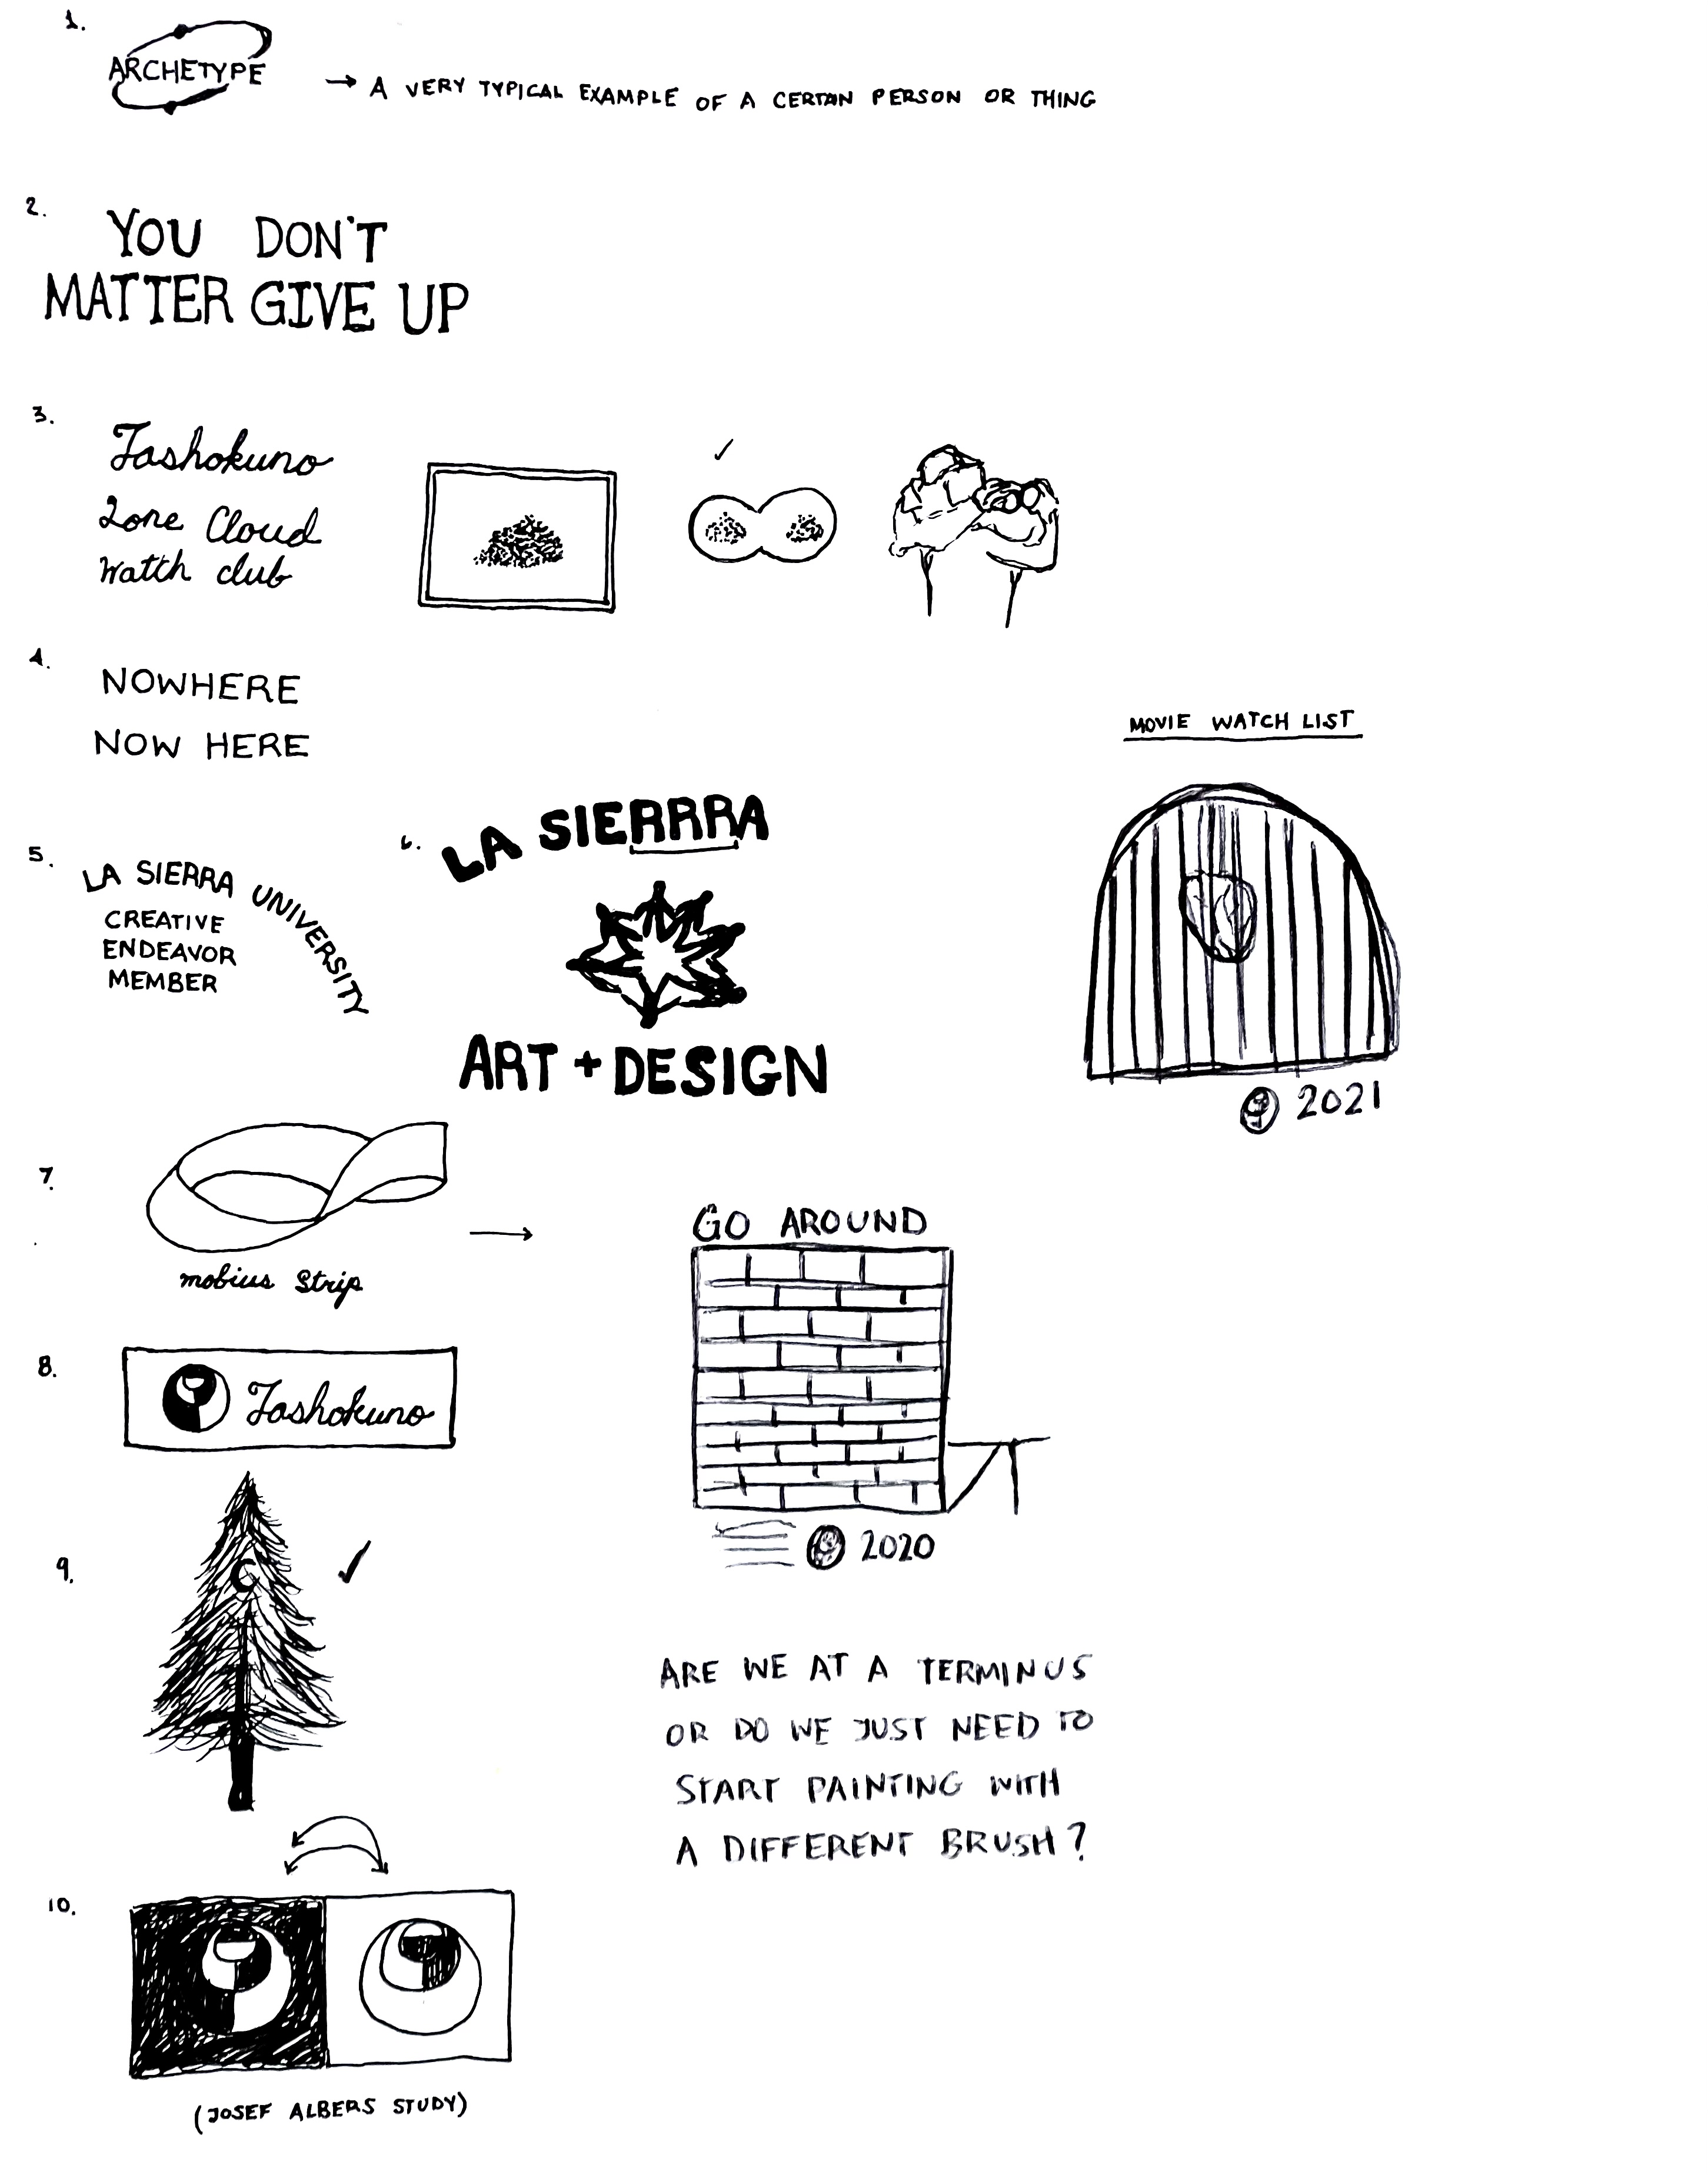 1.
ARCHETYPE
→ A VERY TYPICAL EXAMPLE OF A CERTAIN PERSON OR THING
2.
YOU DON'T
MATTER GIVE UP
3.
Tashokuno
Lone Cloud
Watch club
4.
NOWHERE
NOW HERE
MOVIE WATCH LIST
2021
5.
LA SIERRA UNIVERSITY
CREATIVE
ENDEAVOR
MEMBER
6.
LA SIERRRA
ART + DESIGN
7.
mobius Strip
GO AROUND
2020
8.
Tashokuno
9.
C
ARE WE AT A TERMINUS
OR DO WE JUST NEED TO
START PAINTING WITH
A DIFFERENT BRUSH?
10.
(JOSEF ALBERS STUDY)